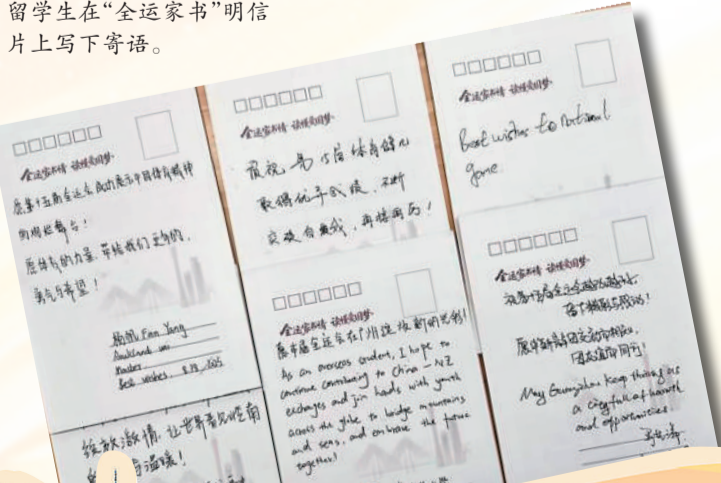 留学生在“全运家书”明信
片上写下寄语。
全运家书情 读懂爱国梦
愿第十五届全运会成为展示中国体育精神
的璀璨舞台！
愿体育的力量，带给我们更多的
勇气与希望！
Fan Yang
Auckland uni
Master
Best wishes. 8.19. 2025
全运家书情 读懂爱国梦
预祝 第15届体育健儿
取得优异成绩，不断
突破自我，再续辉煌！
全运家书情 读懂爱国梦
Best wishes to National
game
绽放激情，让世界看见岭南
与温暖！
全运家书情 读懂爱国梦
愿本届全运会在广州绽放新的光彩！
As an overseas student, I hope to
continue contributing to China-NZ
exchanges and join hands with youth
across the globe to bridge mountains
and seas, and embrace the future
together!
全运家书情 读懂爱国梦
祝第十五届全运会
留下精彩与感动！
May Guangzhou keep thriving as
a city full of warmth
and opportunities